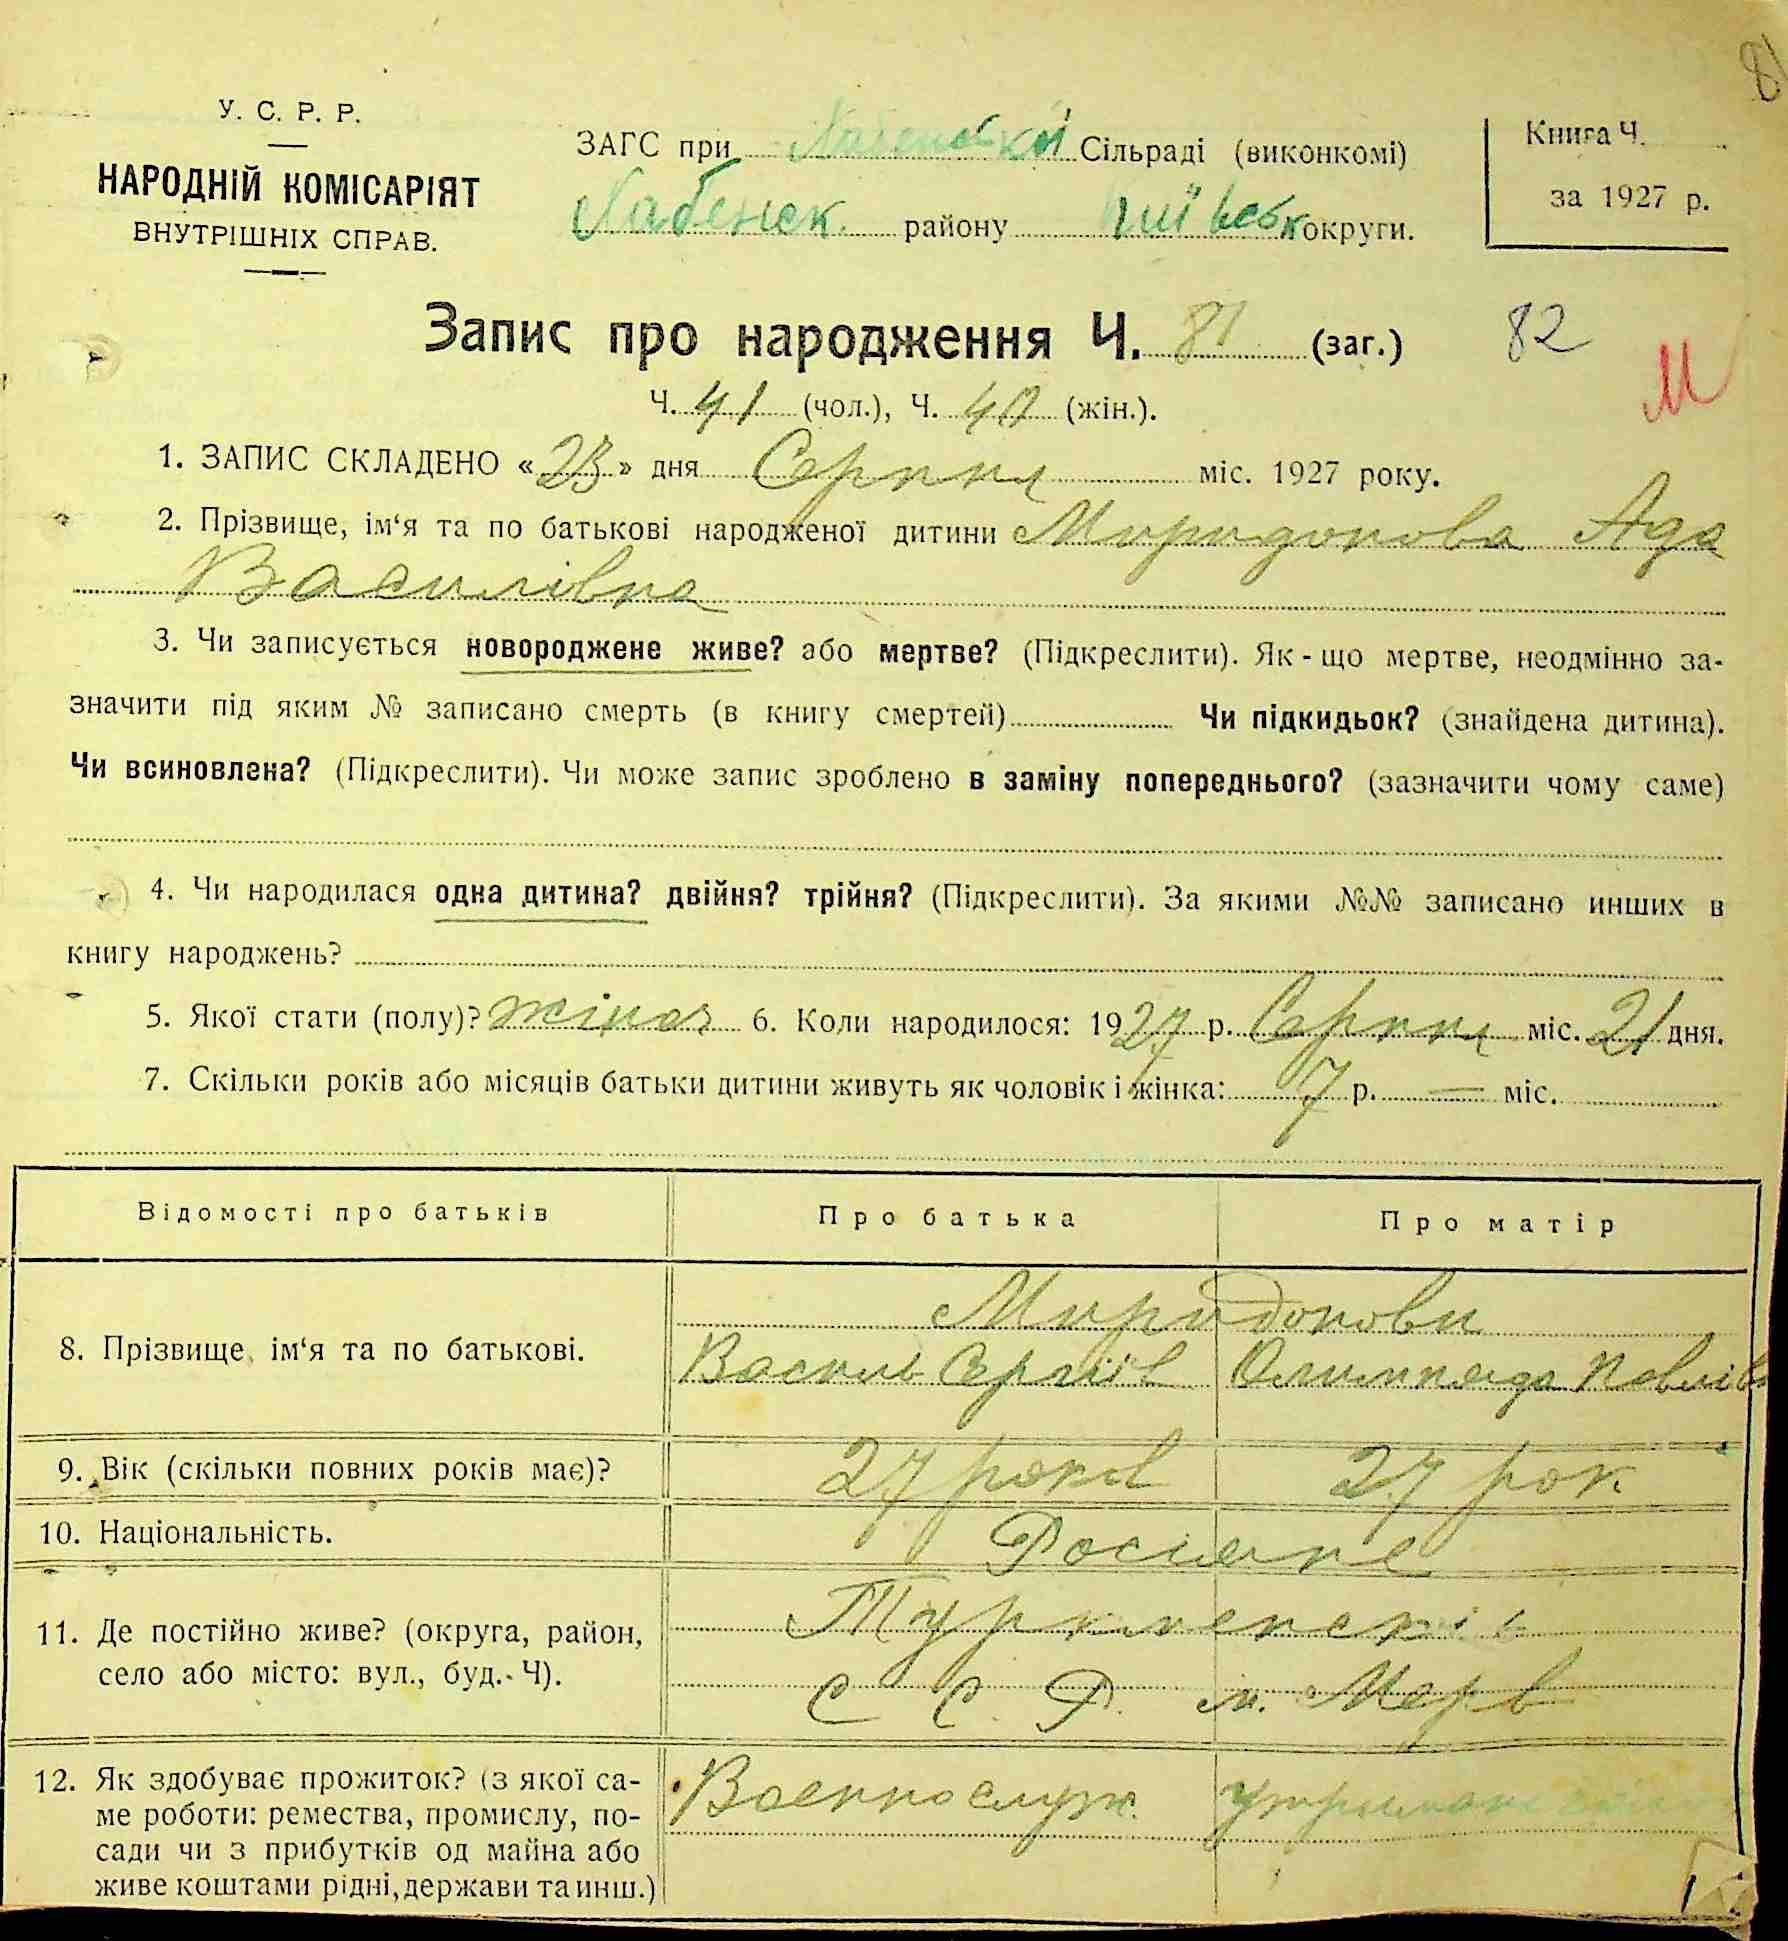 8
У. С. Р. Р.
НАРОДНІЙ КОМІСАРІЯТ
ВНУТРІШНІХ СПРАВ.
ЗАГС при Хабенській Сільраді (виконкомі)
Хабенськ. району Київськ округи.
Книга Ч.
за 1927 р.
Запис про народження Ч. 81 (заг.) 82
М
Ч. 41 (чол.), Ч. 40 (жін.).
1. ЗАПИС СКЛАДЕНО «23» дня Серпня міс. 1927 року.
2. Прізвище, ім‘я та по батькові народженої дитини Миридонова Ада
Василівна
3. Чи записується новороджене живе? або мертве? (Підкреслити). Як-що мертве, неодмінно за-
значити під яким № записано смерть (в книгу смертей) Чи підкидьок? (знайдена дитина).
Чи всиновлена? (Підкреслити). Чи може запис зроблено в заміну попереднього? (зазначити чому саме)
4. Чи народилася одна дитина? двійня? трійня? (Підкреслити). За якими №№ записано инших в
книгу народжень?
5. Якої стати (полу)? жіноч 6. Коли народилося: 1927 р. Серпня міс. 21 дня.
7. Скільки років або місяців батьки дитини живуть як чоловік і жінка: 7 р. — міс.
Відомості про батьків Про батька Про матір
8. Прізвище, ім‘я та по батькові.
Миридонови
Василь Сергіїв Олимпяда Павлів
9. Вік (скільки повних років має)? 27 років 27 рок.
10. Національність. Росіяне
11. Де постійно живе? (округа, район,
село або місто: вул., буд. Ч).
Туркменській
С. С. Р. м. Мерв
12. Як здобуває прожиток? (з якої са-
ме роботи: ремества, промислу, по-
сади чи з прибутків од майна або
живе коштами рідні, держави та инш.)
Воєннослуж.